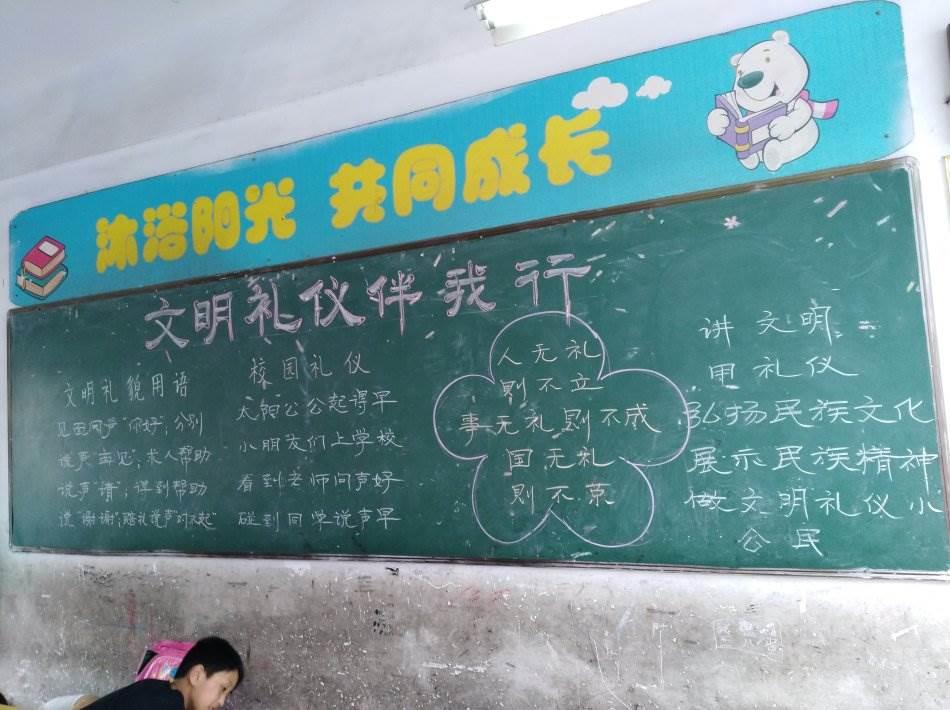 沐浴阳光 共同成长
文明礼仪伴我行
文明礼貌用语
见面问声"你好"；分别
说声"再见"；求人帮助
说声"请"；得到帮助
说"谢谢"；踏礼说声"对不起"
校园礼仪
太阳公公起得早
小朋友们上学校
看到老师问声好
碰到同学说声早
人无礼
则不立
事无礼则不成
国无礼
则不荣
讲文明
用礼仪
弘扬民族文化
展示民族精神
做文明礼仪小
公民